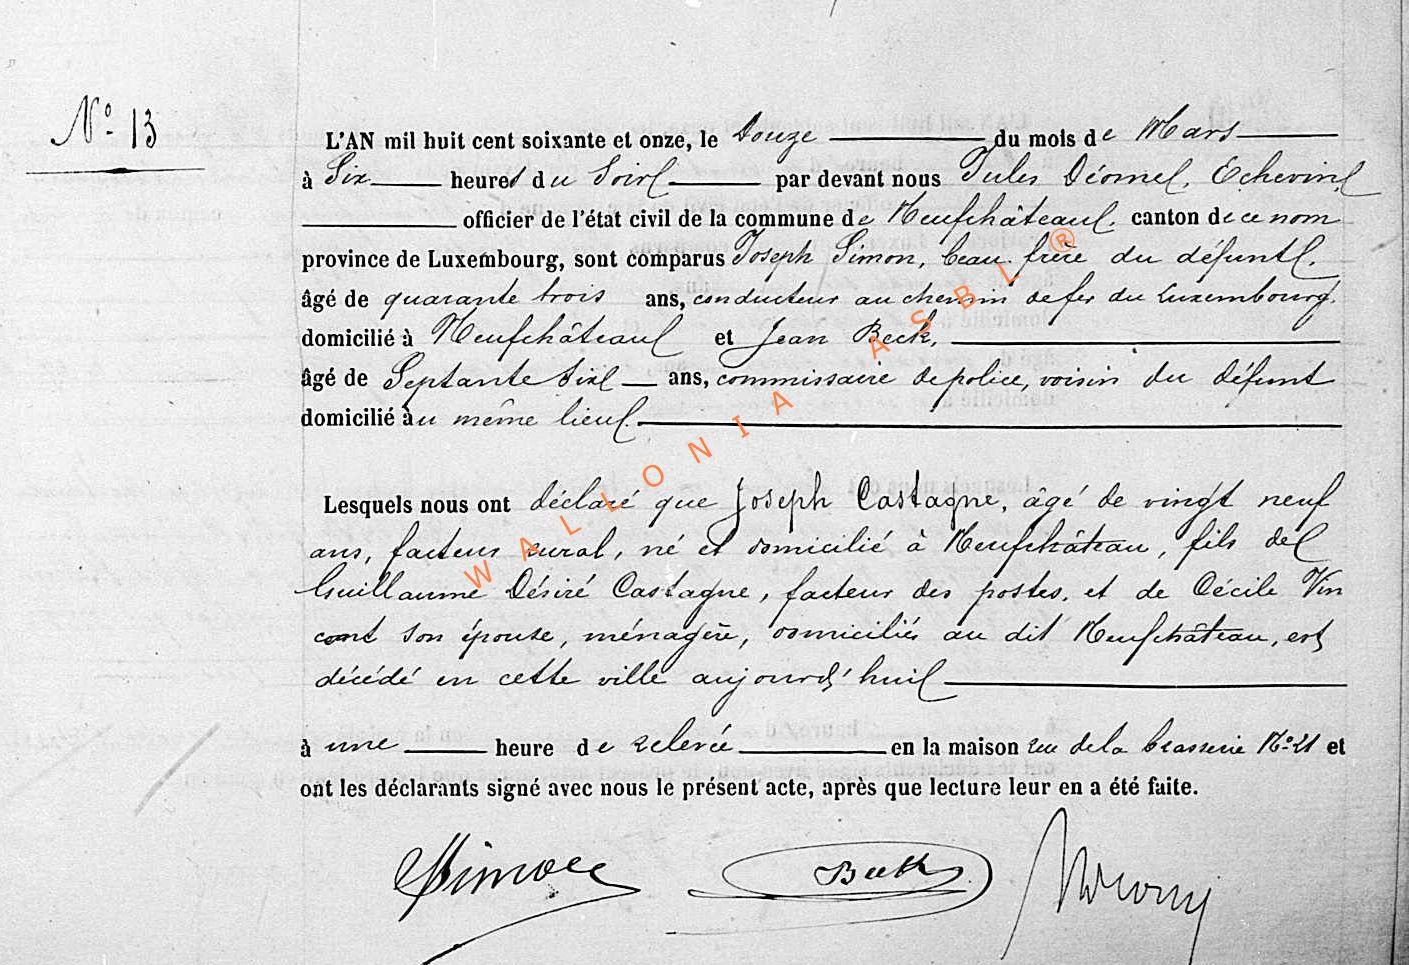 N° 13
L'AN mil huit cent soixante et onze, le Douze du mois de Mars
à Six heures du Soir par devant nous Jules Echevin
officier de l'état civil de la commune de Neufchâteau, canton de ce nom
province de Luxembourg, sont comparus Joseph Simon, beau frère du défunt,
âgé de quarante trois ans, conducteur au chemin de fer du Luxembourg,
domicilié à Neufchâteau et Jean Beck,
âgé de Septante six ans, commissaire de police, voisin du défunt
domicilié au même lieu.
Lesquels nous ont déclaré que Joseph Castagne, âgé de vingt neuf
ans, facteur rural, né et domicilié à Neufchâteau, fils de
Guillaume Désiré Castagne, facteur des postes, et de Cécile Vin
cent son épouse, ménagère, domiciliés au dit Neufchâteau, est
décédé en cette ville aujourd'hui
à une heure de relevée en la maison rue de la brasserie N° 21 et
ont les déclarants signé avec nous le présent acte, après que lecture leur en a été faite.
Simon Beck
WALLONIA ASBL ®